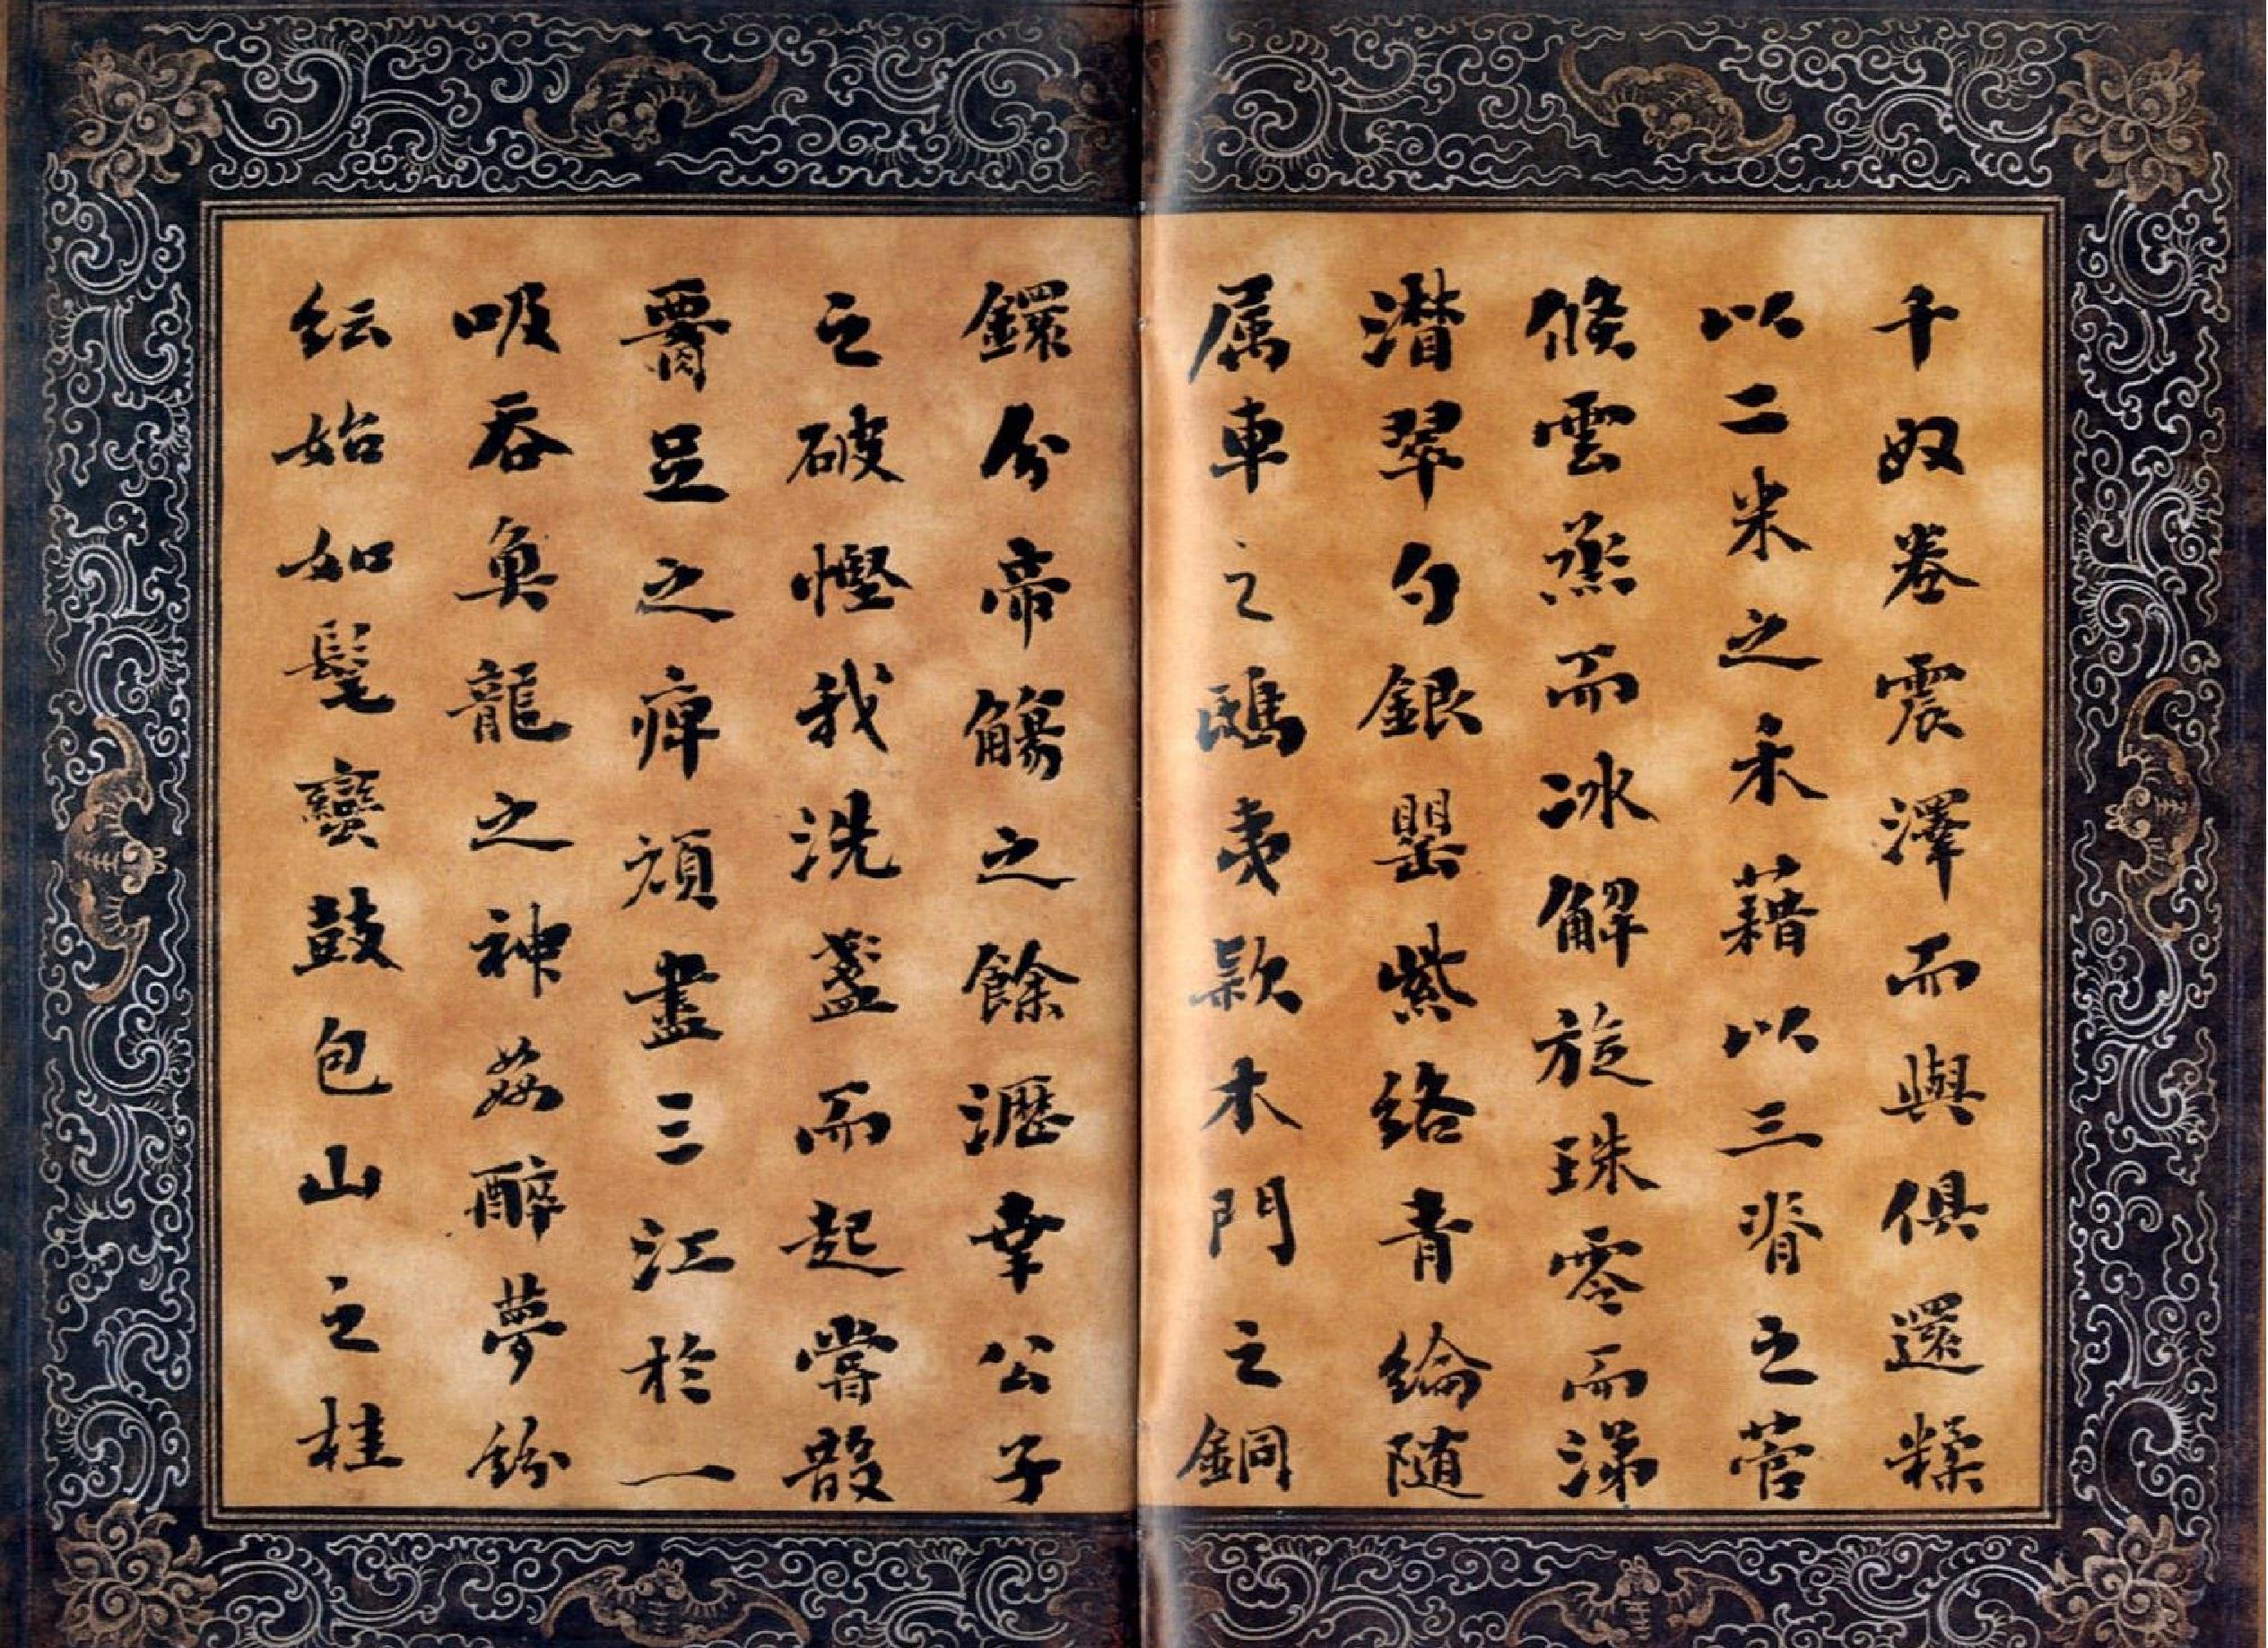 千奴卷震澤而與俱還糅
以二米之禾藉以三脊之菅
倐雲烝而冰解旋珠零而涕
潸翠勺銀罌紫絡青綸随
属車之鴟夷款木門之銅
鐶分帝觴之餘瀝幸公子
之破慳我洗盞而起嘗散
腰足之痺頑盡三江於一
吸吞魚龍之神姦醉夢紛
紜始如髦蠻鼓包山之桂